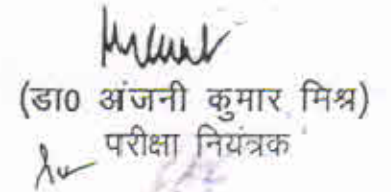 (डा0 अंजनी कुमार मिश्र)
परीक्षा नियंत्रक